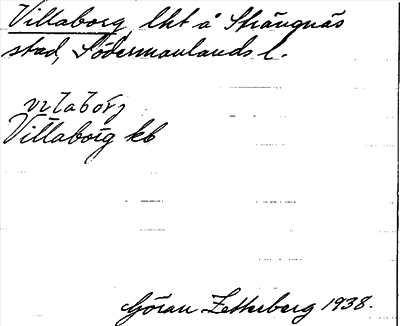 Villaborg, lht å Strängnäs
stad, Södermanlands l.
vɪlabórj
Villaborg kb
Göran Zetterberg 1938.